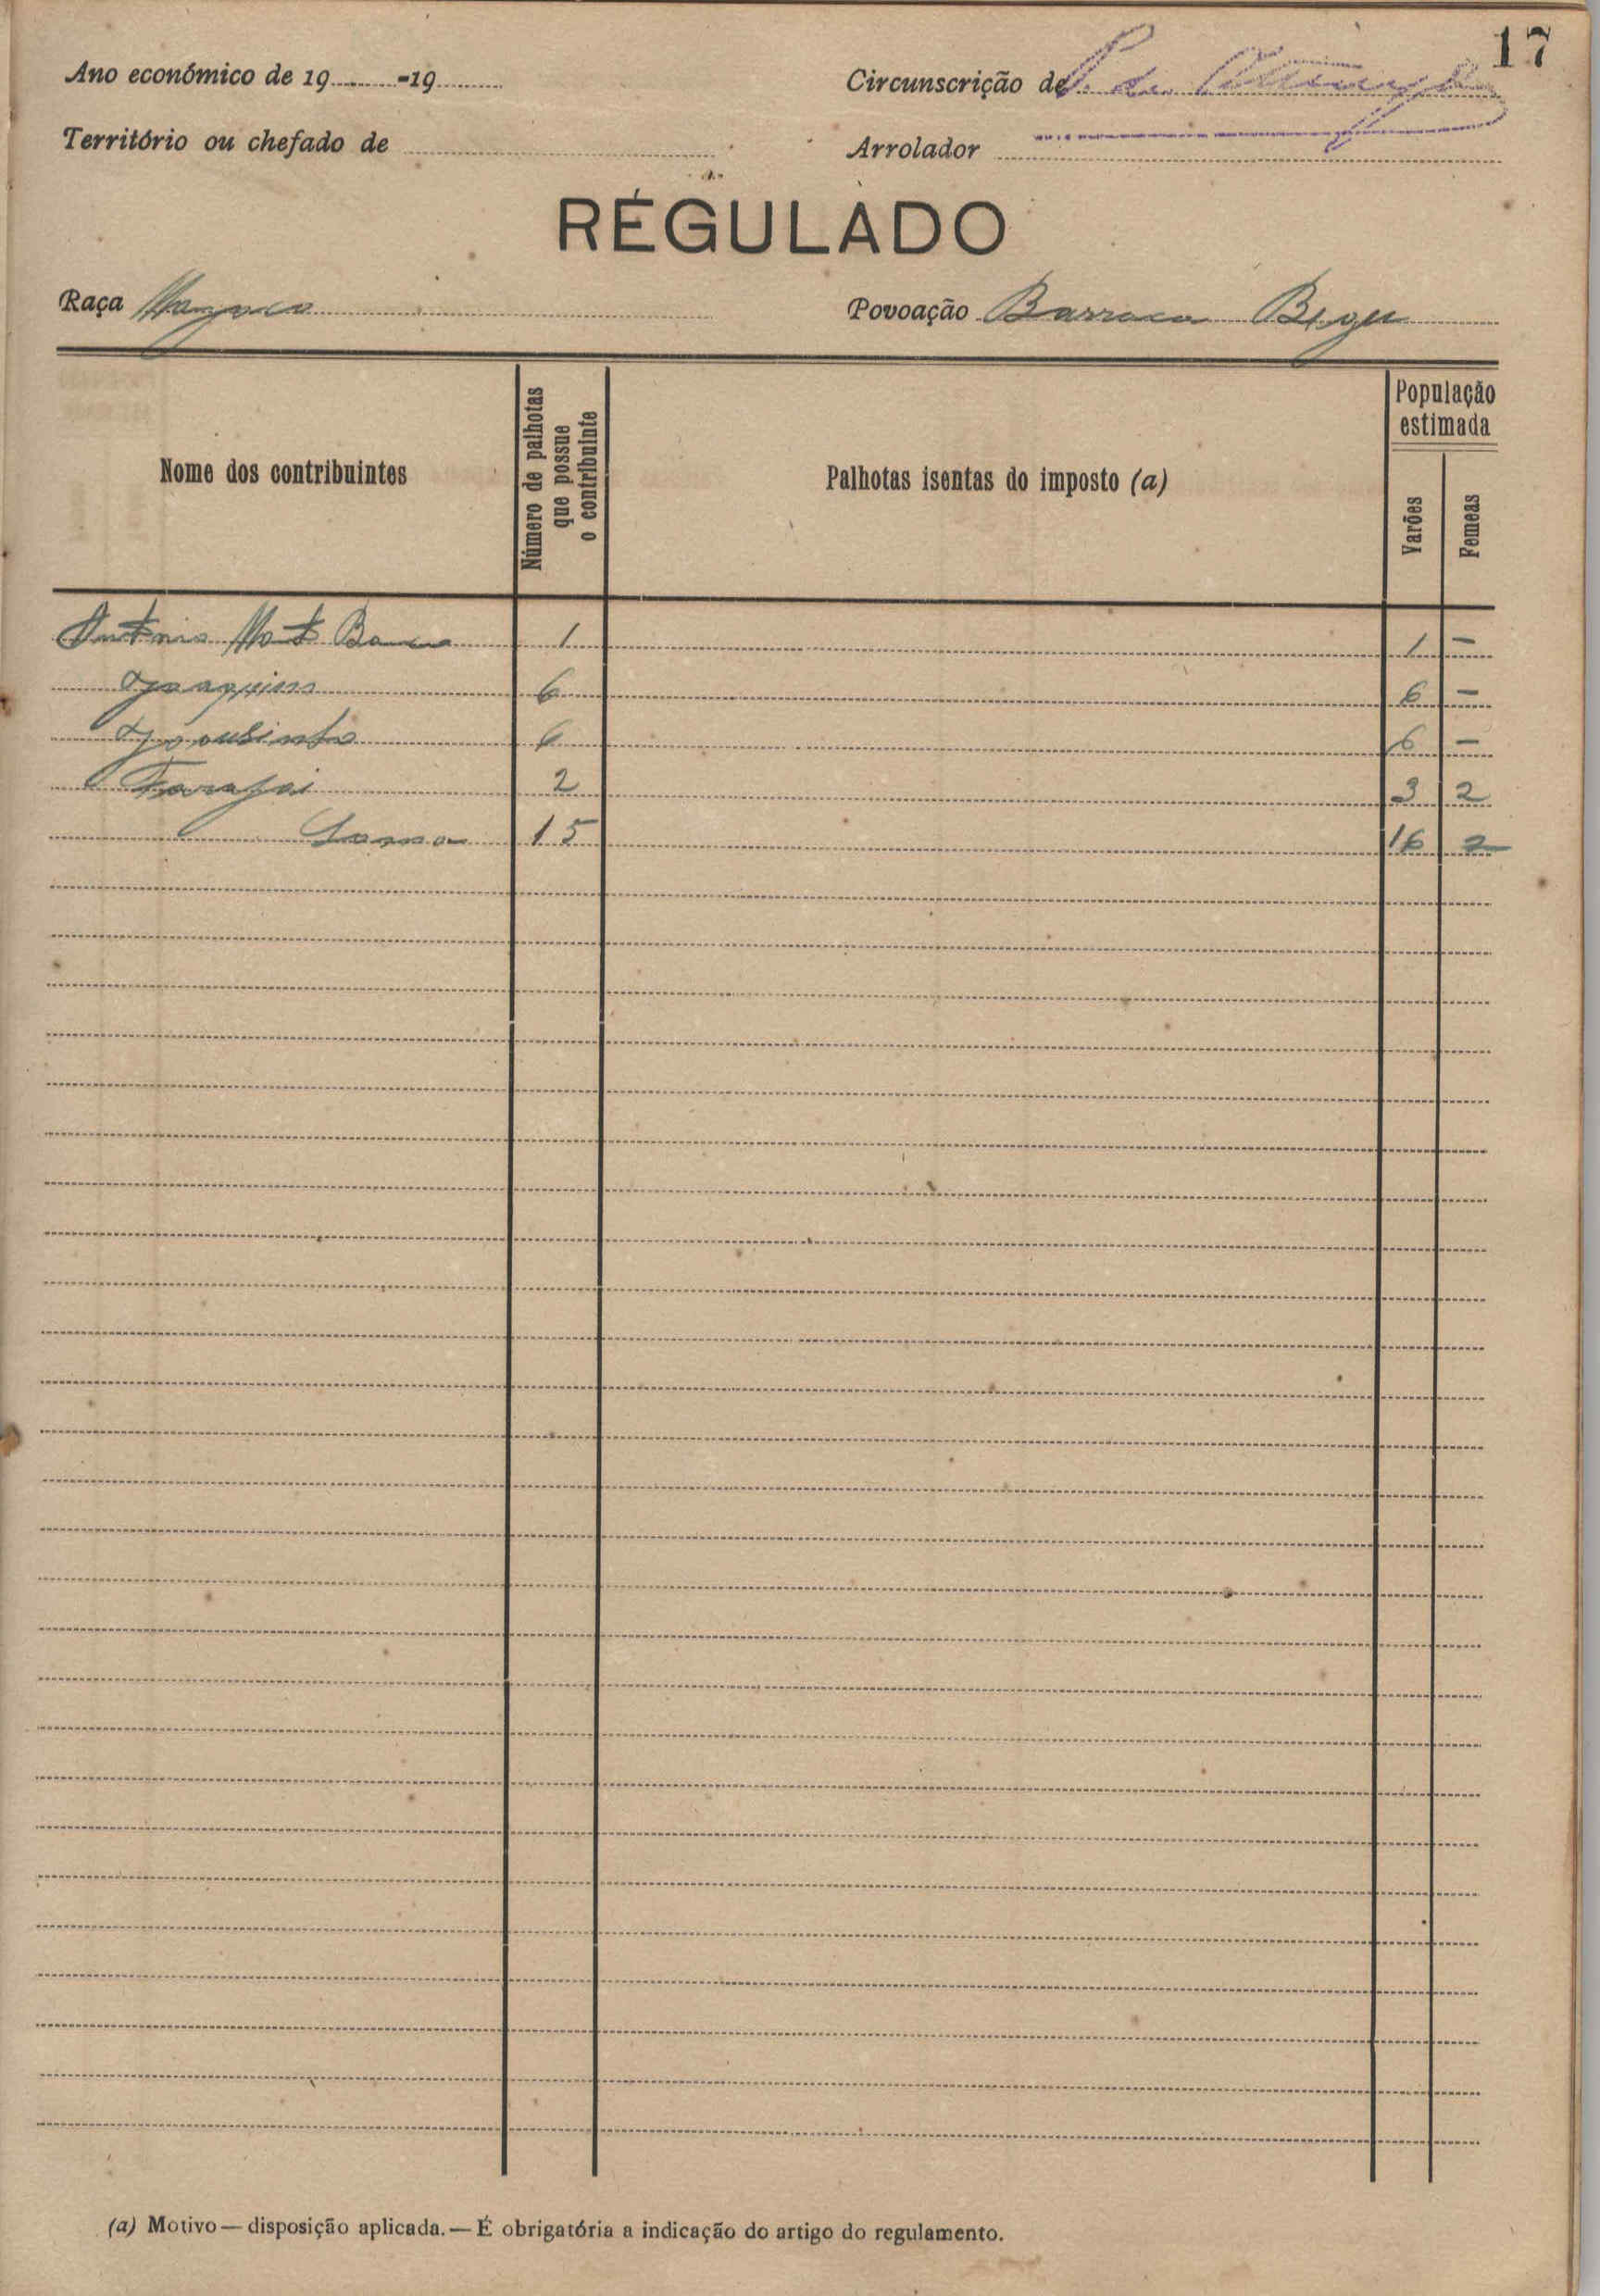 17
Ano económico de 19 -19
Circunscrição de
Território ou chefado de
Arrolador
REGULADO
Raça
Povoação Barraca
Nome dos contribuintes
Número de palhotas que possue o contribuinte
Palhotas isentas do imposto (a)
População estimada
Varões
Femeas
António 1 1 —
Joaquim 6 6 —
6 6 —
2 3 2
Soma 15 16 2
(a) Motivo — disposição aplicada. — É obrigatória a indicação do artigo do regulamento.